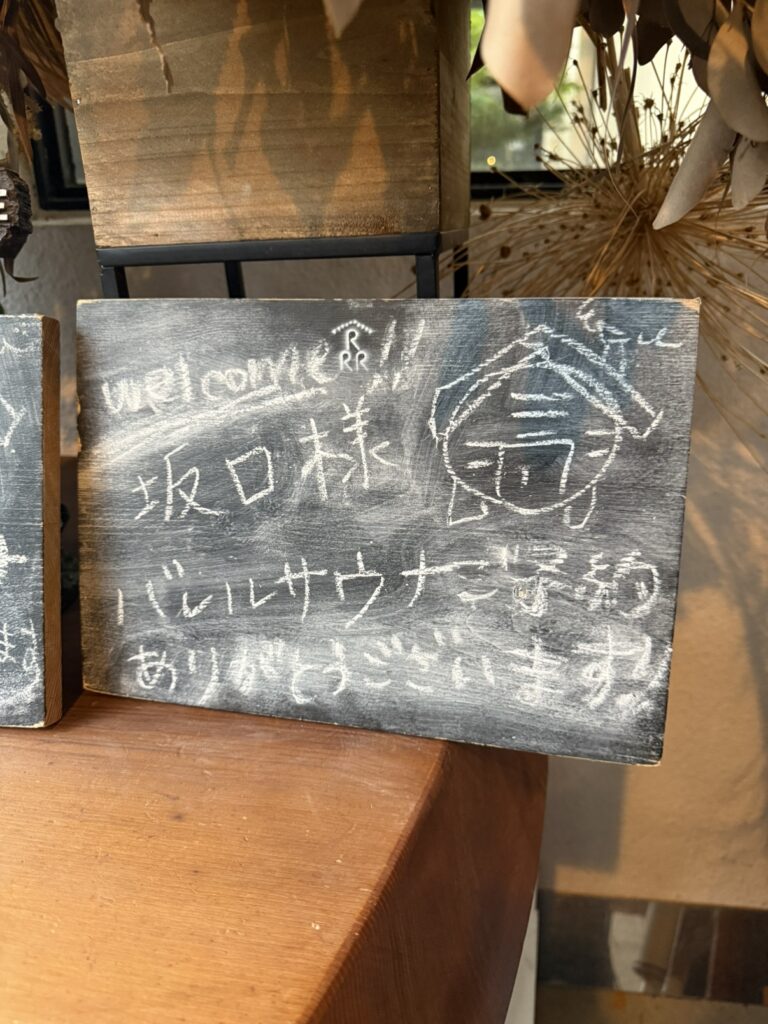 welcome!!
R
RR
坂口様
バレルサウナご予約
ありがとうございます!!